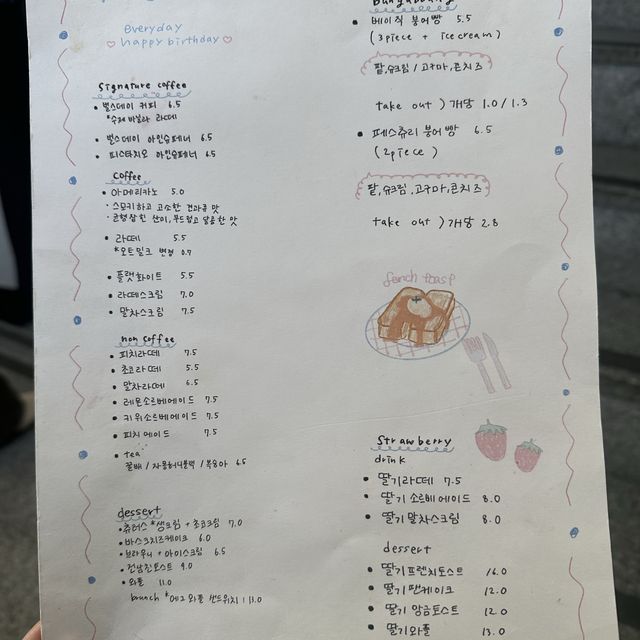 everyday
happy birthday
Signature coffee
벌스데이 커피 6.5
*수제 바닐라 라떼
벌스데이 아인슈페너 6.5
피스타치오 아인슈페너 6.5
coffee
아메리카노 5.0
· 스모키하고 고소한 견과류 맛
· 균형잡힌 산미, 부드럽고 달콤한 맛
라떼 5.5
*오트밀크 변경 0.7
플랫화이트 5.5
라떼스크림 7.0
말차스크림 7.5
non coffee
피치라떼 7.5
초코라떼 5.5
말차라떼 6.5
레몬소르베에이드 7.5
키위소르베에이드 7.5
피치에이드 7.5
tea
꿀배 / 자몽허니블랙 / 복숭아 6.5
dessert
츄러스 *생크림 + 초코크림 7.0
바스크치즈케이크 6.0
브라우니 + 아이스크림 6.5
토스트 9.0
와플 11.0
brunch *에그와플 샌드위치 : 13.0
베이직 붕어빵 5.5
(3piece + icecream)
팥,슈크림 / 고구마,콘치즈
take out ) 개당 1.0 / 1.3
페스츄리 붕어빵 6.5
(2piece)
팥,슈크림,고구마,콘치즈
take out ) 개당 2.8
french toast
Strawberry
drink
딸기라떼 7.5
딸기 소르베에이드 8.0
딸기 말차스크림 8.0
dessert
딸기프렌치토스트 16.0
딸기 팬케이크 12.0
딸기 앙금토스트 12.0
딸기와플 13.0